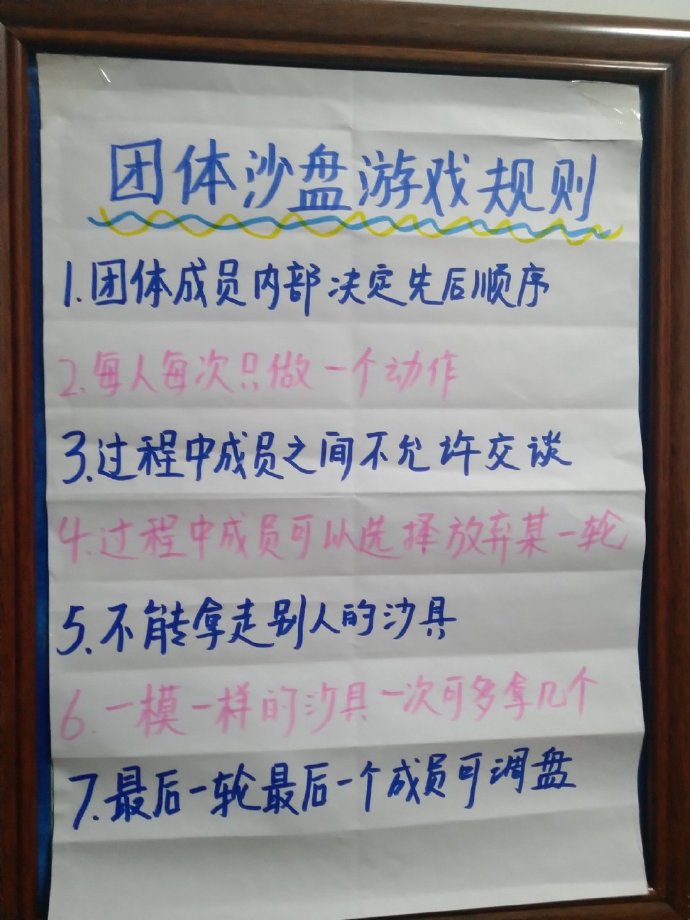 团体沙盘游戏规则
1.团体成员内部决定先后顺序
2.每人每次只做一个动作
3.过程中成员之间不允许交谈
4.过程中成员可以选择放弃某一轮
5.不能拿走别人的沙具
6.一模一样的沙具一次可多拿几个
7.最后一轮最后一个成员可调盘